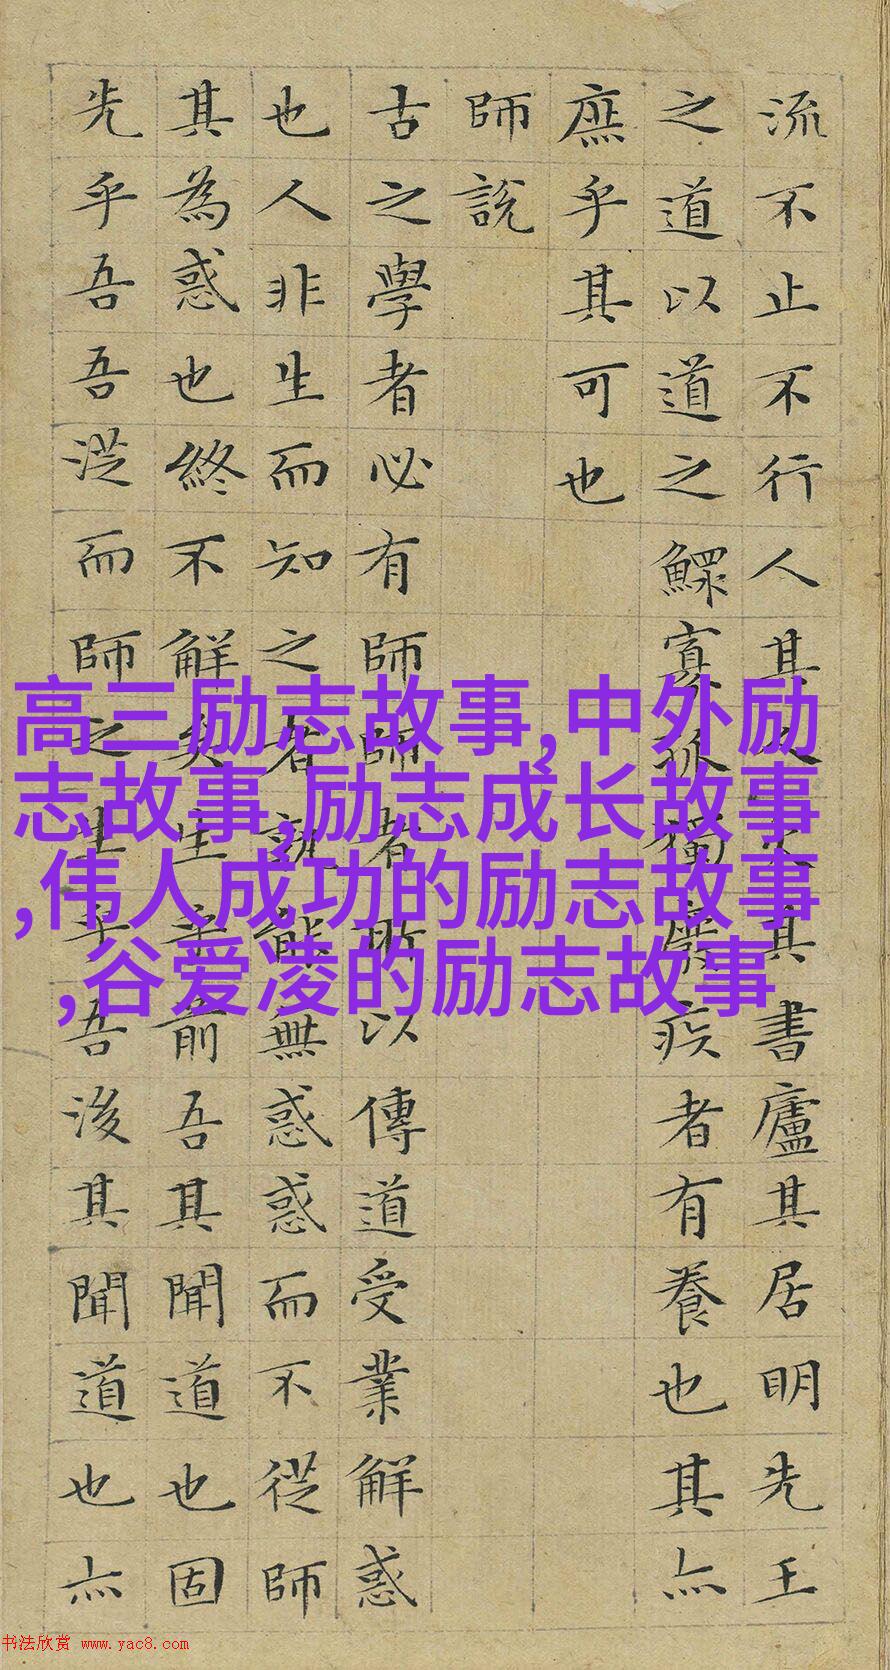 流不止不行人其人火其書廬其居明先王
之道以道之鰥寡孤獨廢疾者有養也其亦
庶乎其可也
師說
古之學者必有師師者所以傳道受業解惑
也人非生而知之者孰能無惑惑而不從師
其為惑也終不解矣生乎前吾其聞道也固
先乎吾吾從而師之生乎吾後其聞道也亦
高三励志故事,中外励
志故事,励志成长故事
,伟人成功的励志故事
,谷爱凌的励志故事
书法欣赏 www.yac8.com